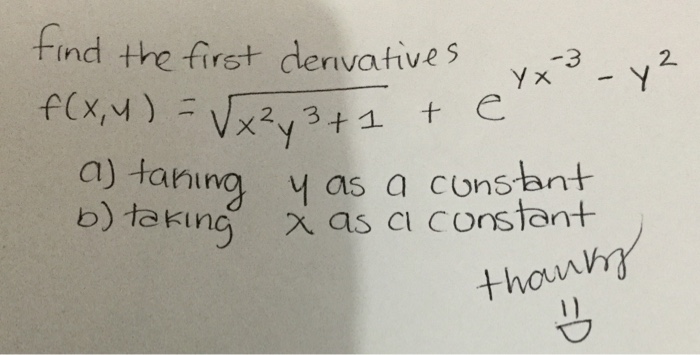 find the first derivatives
f(x,y) = √x²y³+1 + e^yx⁻³ - y²
a) taking y as a constant
b) taking x as a constant
thanks
=D